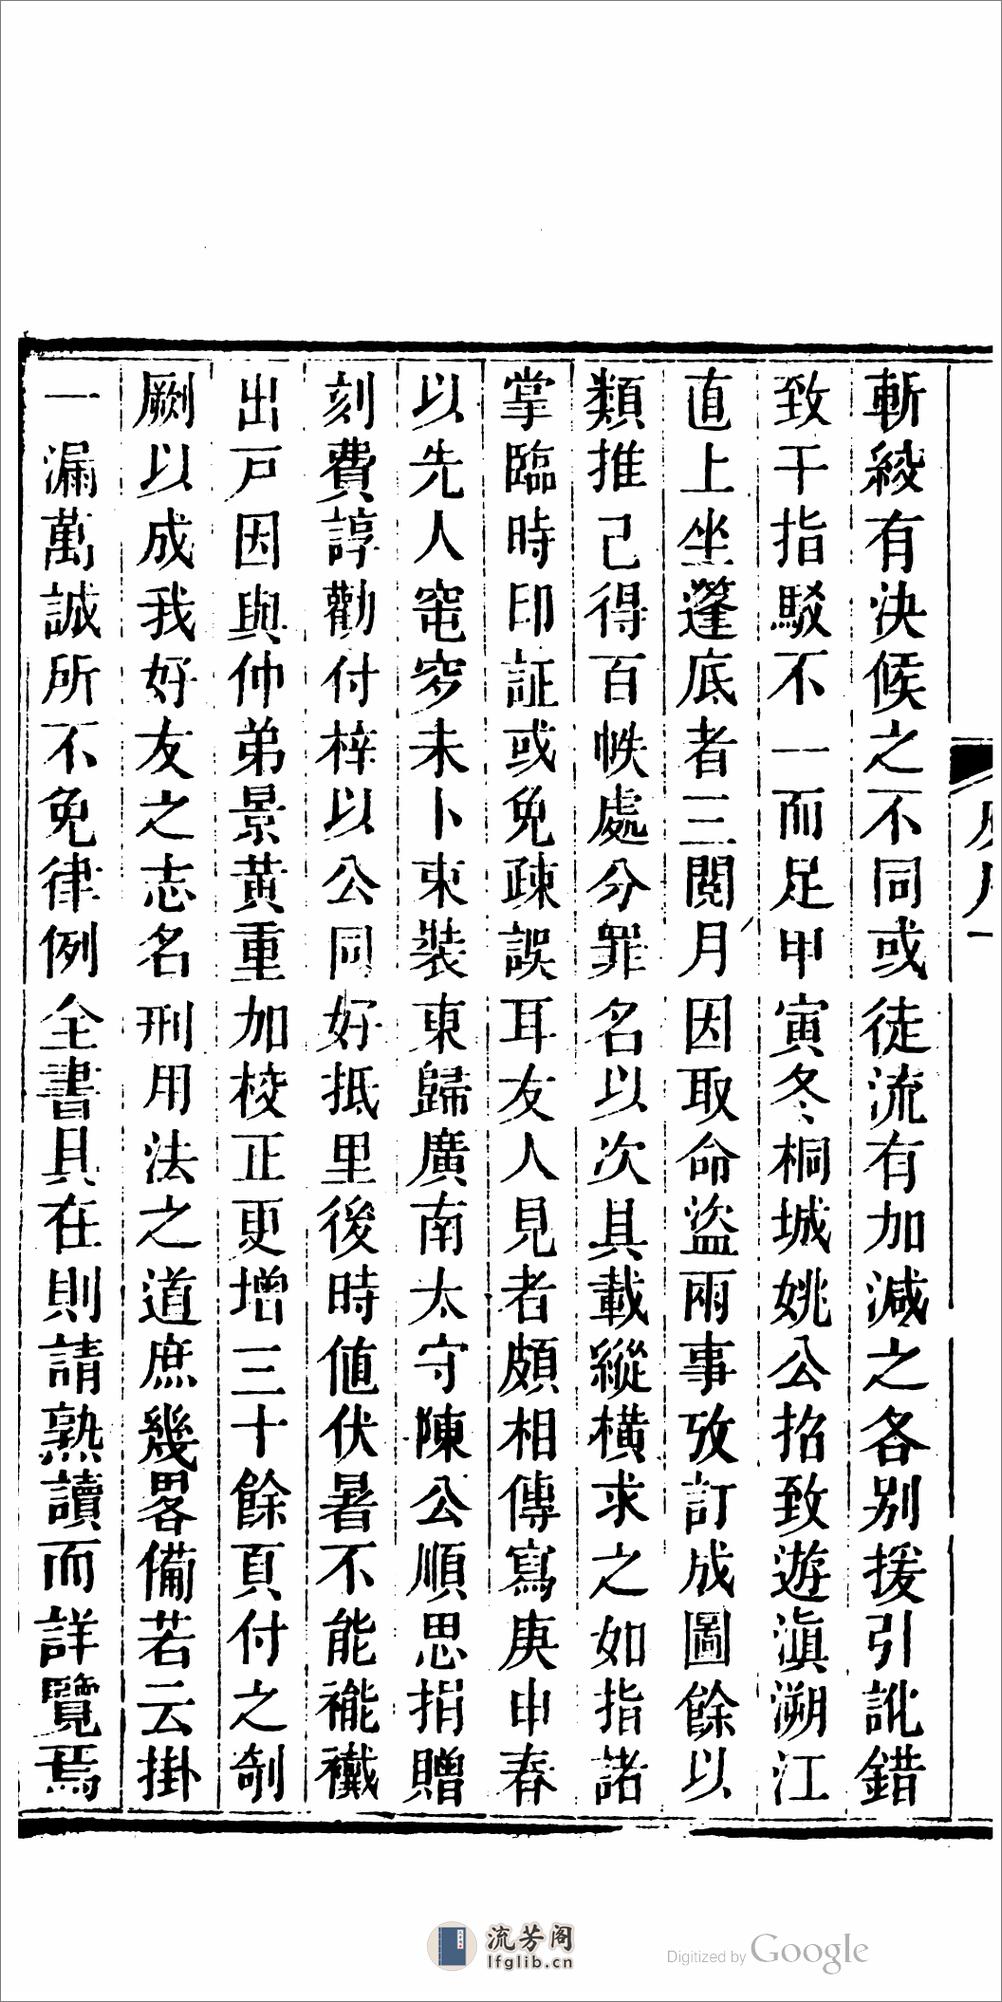 斬絞有決候之不同或徒流有加減之各別援引訛錯
致干指駁不一而足甲寅冬桐城姚公招致遊滇溯江
直上坐蓬底者三閱月因取命盜兩事攷訂成圖餘以
類推己得百帙處分罪名以次具載縱橫求之如指諸
掌臨時印証或免疎誤耳友人見者頗相傳寫庚申春
以先人窀穸未卜束裝東歸廣南太守陳公順思捐贈
刻費諄勸付梓以公同好抵里後時值伏暑不能襶
出戸因與仲弟景黃重加校正更增三十餘頁付之剞
厥以成我好友之志名刑用法之道庶幾畧備若云掛
一漏萬誠所不免律例全書具在則請熟讀而詳覽焉
流芳阁
lfglib.cn
Digitized by Google